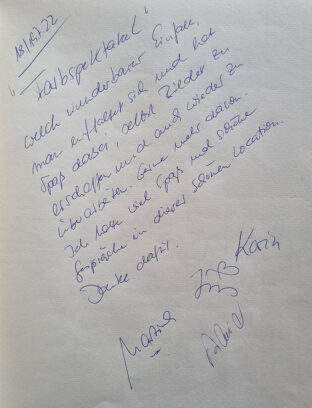 18/19.7.22
"Farbspektakel"
welch wunderbarer Einfall,
man entfaltet sich und hat
Spaß dabei, selbst Bilder zu
erschaffen und auch wieder zu
überarbeiten. Gerne mehr davon.
Ich hatte viel Spaß und schöne
Gespräche in dieser schönen Location.
Danke dafür.
Karin
Martina